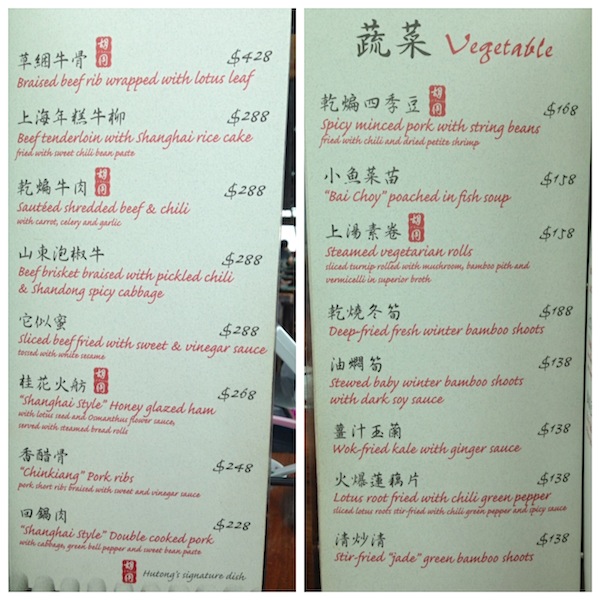 草綑牛骨 胡同 $428
Braised beef rib wrapped with lotus leaf
上海年糕牛柳 $288
Beef tenderloin with Shanghai rice cake
fried with sweet chili bean paste
乾煸牛肉 胡同 $288
Sautéed shredded beef & chili
with carrot, celery and garlic
山東泡椒牛 $288
Beef brisket braised with pickled chili
& Shandong spicy cabbage
它似蜜 $288
Sliced beef fried with sweet & vinegar sauce
tossed with white sesame
桂花火舫 胡同 $268
"Shanghai Style" Honey glazed ham
with lotus seed and Osmanthus flower sauce,
served with steamed bread rolls
香醋骨 $248
"Chinkiang" Pork ribs
pork short ribs braised with sweet and vinegar sauce
回鍋肉 $228
"Shanghai Style" Double cooked pork
with cabbage, green bell pepper and sweet bean paste
胡同 Hutong's signature dish
蔬菜 Vegetable
乾煸四季豆 胡同 $168
Spicy minced pork with string beans
fried with chili and dried petite shrimp
小魚菜苗 $158
"Bai Choy" poached in fish soup
上湯素卷 胡同 $158
Steamed vegetarian rolls
sliced turnip rolled with mushroom, bamboo pith and
vermicelli in superior broth
乾燒冬筍 $188
Deep-fried fresh winter bamboo shoots
油燜筍 $138
Stewed baby winter bamboo shoots
with dark soy sauce
薑汁玉蘭 $138
Wok-fried kale with ginger sauce
火爆蓮藕片 $138
Lotus root fried with chili green pepper
sliced lotus roots stir-fried with chili green pepper and spicy sauce
清炒清 $138
Stir-fried "jade" green bamboo shoots